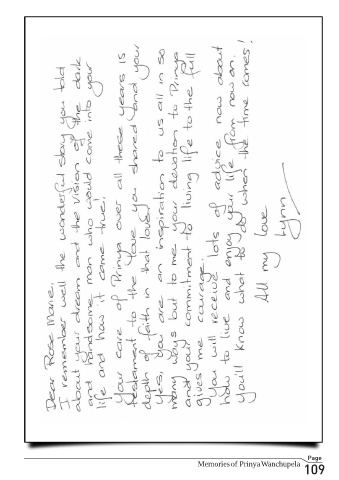 Dear Rose Marie,
I remember well the wonderful story you told
about your dream and the vision of the dark
and handsome man who would come into your
life and how it came true!
Your care of Prinya over all these years is
testament to the love you shared and your
depth of faith in that love.
Yes, you are an inspiration to us all in so
many ways but to me your devotion to Prinya
and your commitment to living life to the full
gives me courage.
You will receive lots of advice now about
how to live and enjoy your life from now on.
You'll know what to do when the time comes!
All my love
Lynn
Memories of Prinya Wanchupela
Page
109